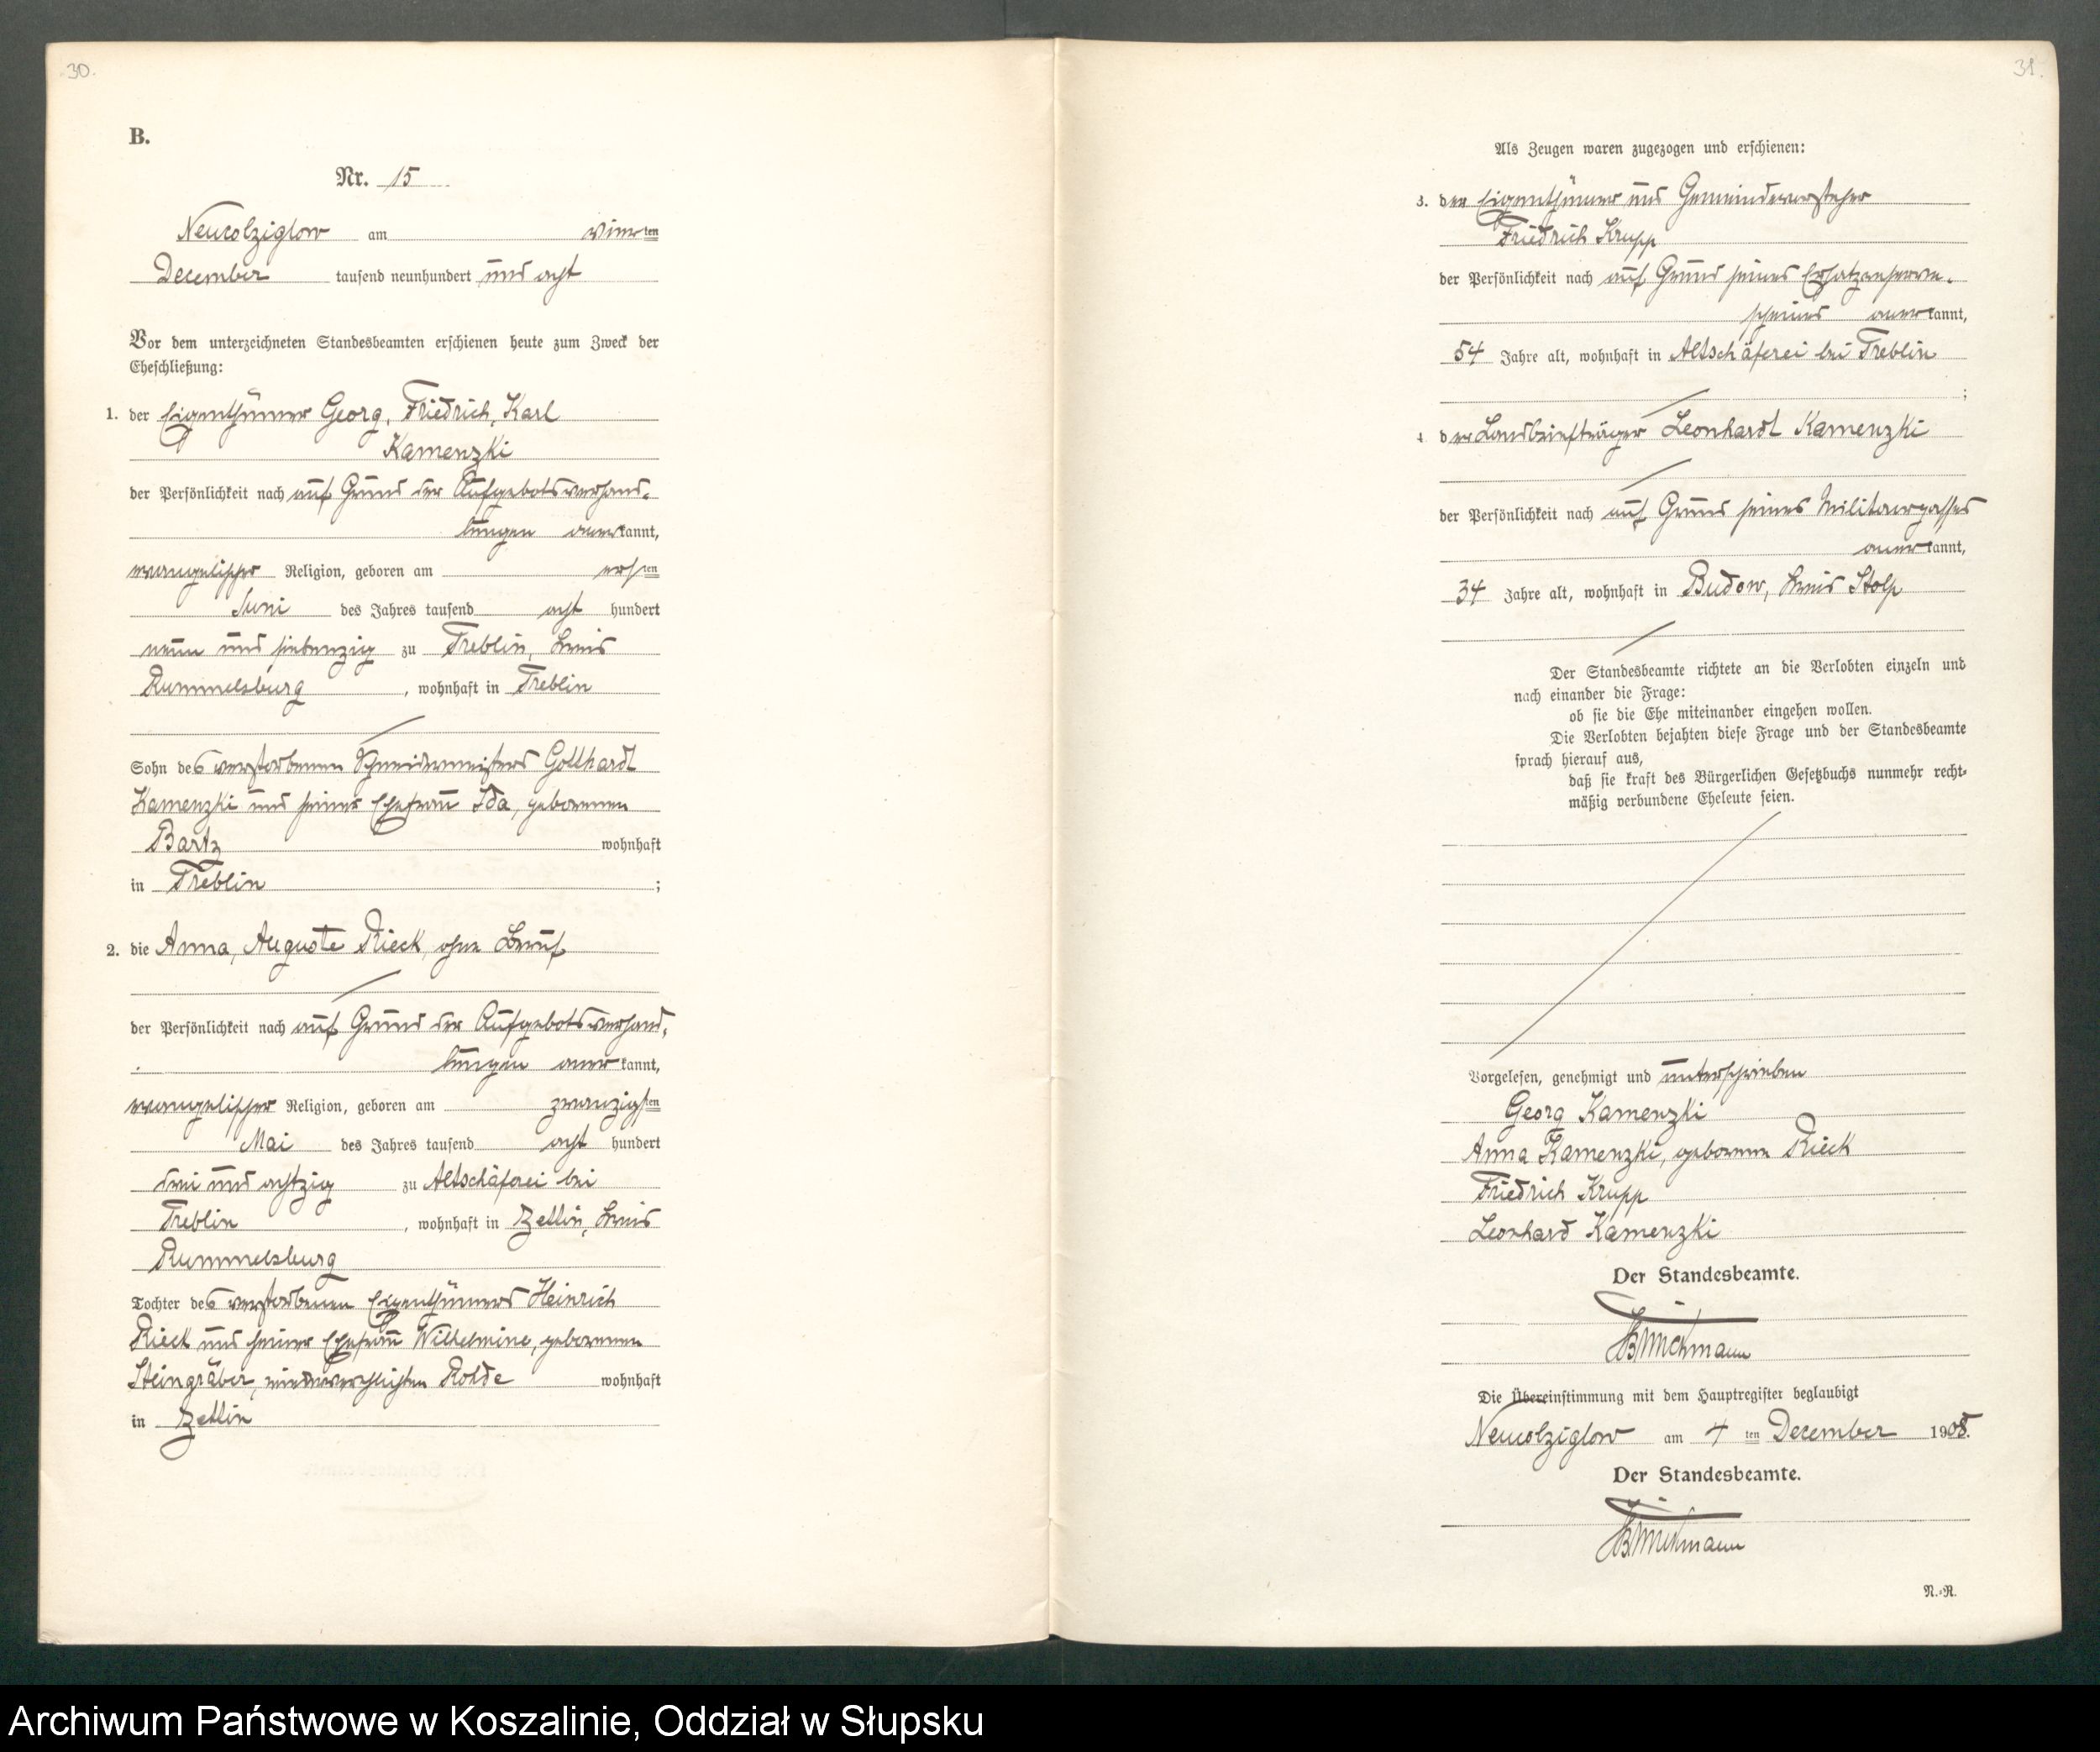 30.
B.
Nr. 15
Neukolziglow am vierten
December tausend neunhundert und acht
Vor dem unterzeichneten Standesbeamten erschienen heute zum Zweck der
Eheschließung:
1. der Eigenthümer Georg, Friedrich, Karl
Kamenzki
der Persönlichkeit nach auf Grund der Aufgebotsverhand-
lungen anerkannt,
evangelischer Religion, geboren am ersten
Juni des Jahres tausend acht hundert
neun und siebenzig zu Treblin, Kreis
Rummelsburg, wohnhaft in Treblin
Sohn des verstorbenen Schneidermeisters Gotthardt
Kamenzki und seiner Ehefrau Ida, geborenen
Bartz wohnhaft
in Treblin;
2. die Anna, Auguste Rieck, ohne Beruf
der Persönlichkeit nach auf Grund der Aufgebotsverhand-
lungen anerkannt,
evangelischer Religion, geboren am zwanzigsten
Mai des Jahres tausend acht hundert
drei und achtzig zu Altschäferei bei
Treblin, wohnhaft in Zettin, Kreis
Rummelsburg
Tochter des verstorbenen Eigenthümers Heinrich
Rieck und seiner Ehefrau Wilhelmine, geborenen
Steingräber, wiederverehelichten Rohde wohnhaft
in Zettin
31.
Als Zeugen waren zugezogen und erschienen:
3. der Eigenthümer und Gemeindevorsteher
Friedrich Krupp
der Persönlichkeit nach auf Grund seines Ersatzreserve-
scheines anerkannt,
54 Jahre alt, wohnhaft in Altschäferei bei Treblin
;
4. der Landbriefträger Leonhardt Kamenzki
der Persönlichkeit nach auf Grund seines Militairpasses
anerkannt,
34 Jahre alt, wohnhaft in Budow, Kreis Stolp
Der Standesbeamte richtete an die Verlobten einzeln und
nach einander die Frage:
ob sie die Ehe miteinander eingehen wollen.
Die Verlobten bejahten diese Frage und der Standesbeamte
sprach hierauf aus,
daß sie kraft des Bürgerlichen Gesetzbuchs nunmehr recht-
mäßig verbundene Eheleute seien.
Vorgelesen, genehmigt und unterschrieben
Georg Kamenzki
Anna Kamenzki, geborene Rieck
Friedrich Krupp
Leonhard Kamenzki
Der Standesbeamte.
Die Übereinstimmung mit dem Hauptregister beglaubigt
Neukolziglow am 4 ten December 1908.
Der Standesbeamte.
N.-R.
Archiwum Państwowe w Koszalinie, Oddział w Słupsku